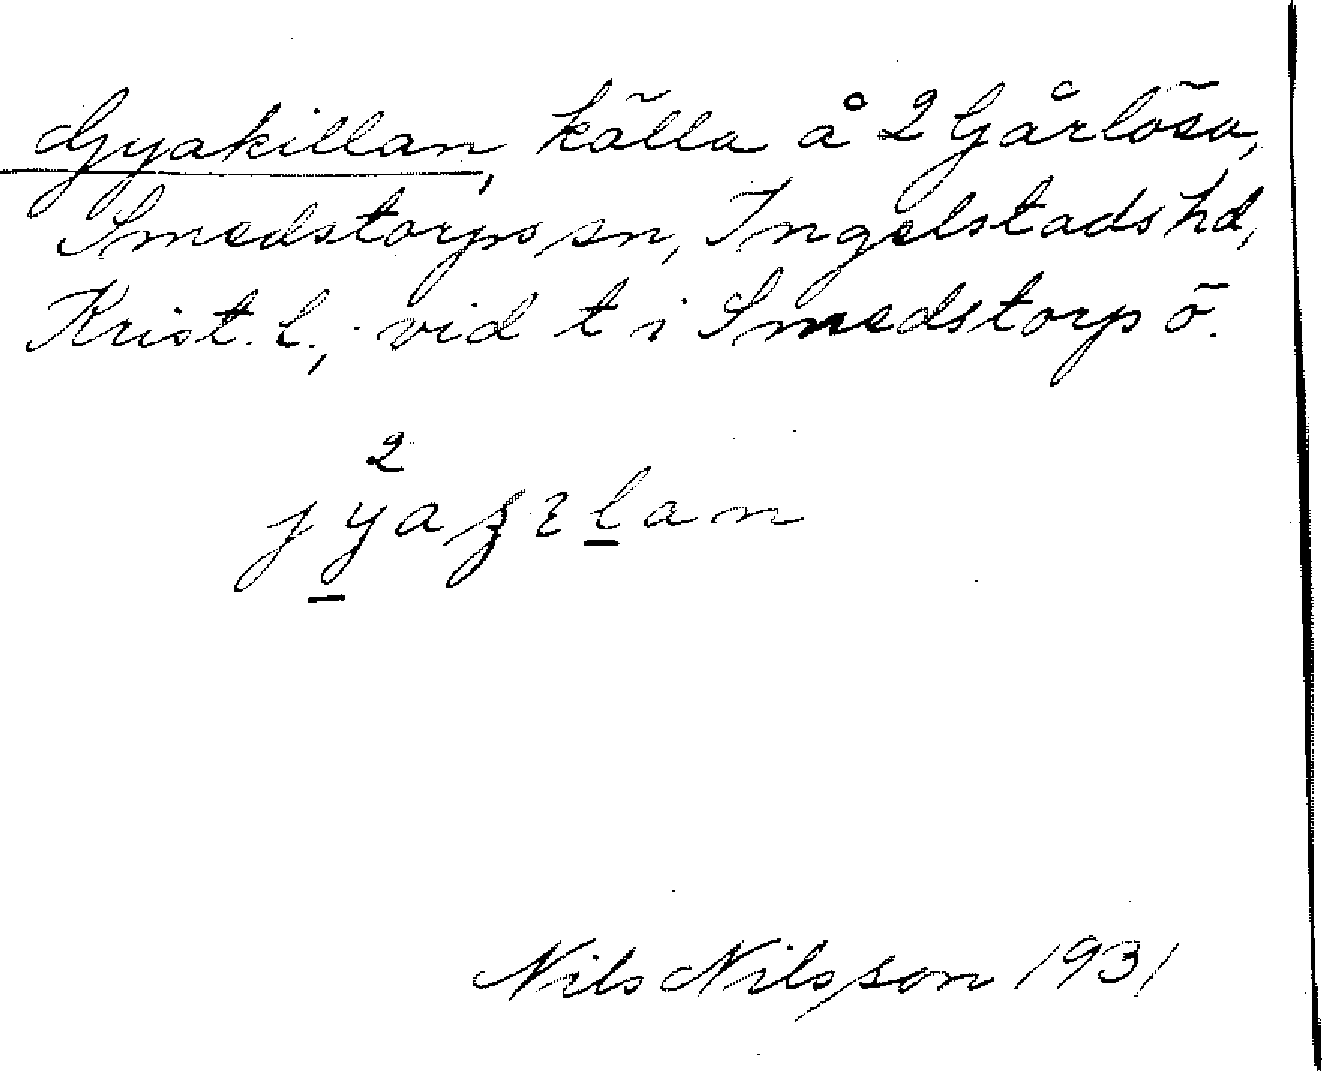 Gyakillan, källa å 2 Gårlösa,
Smedstorps sn, Ingelstads hd,
Krist. l., vid t i Smedstorp ö.
2
Nils Nilsson 1931